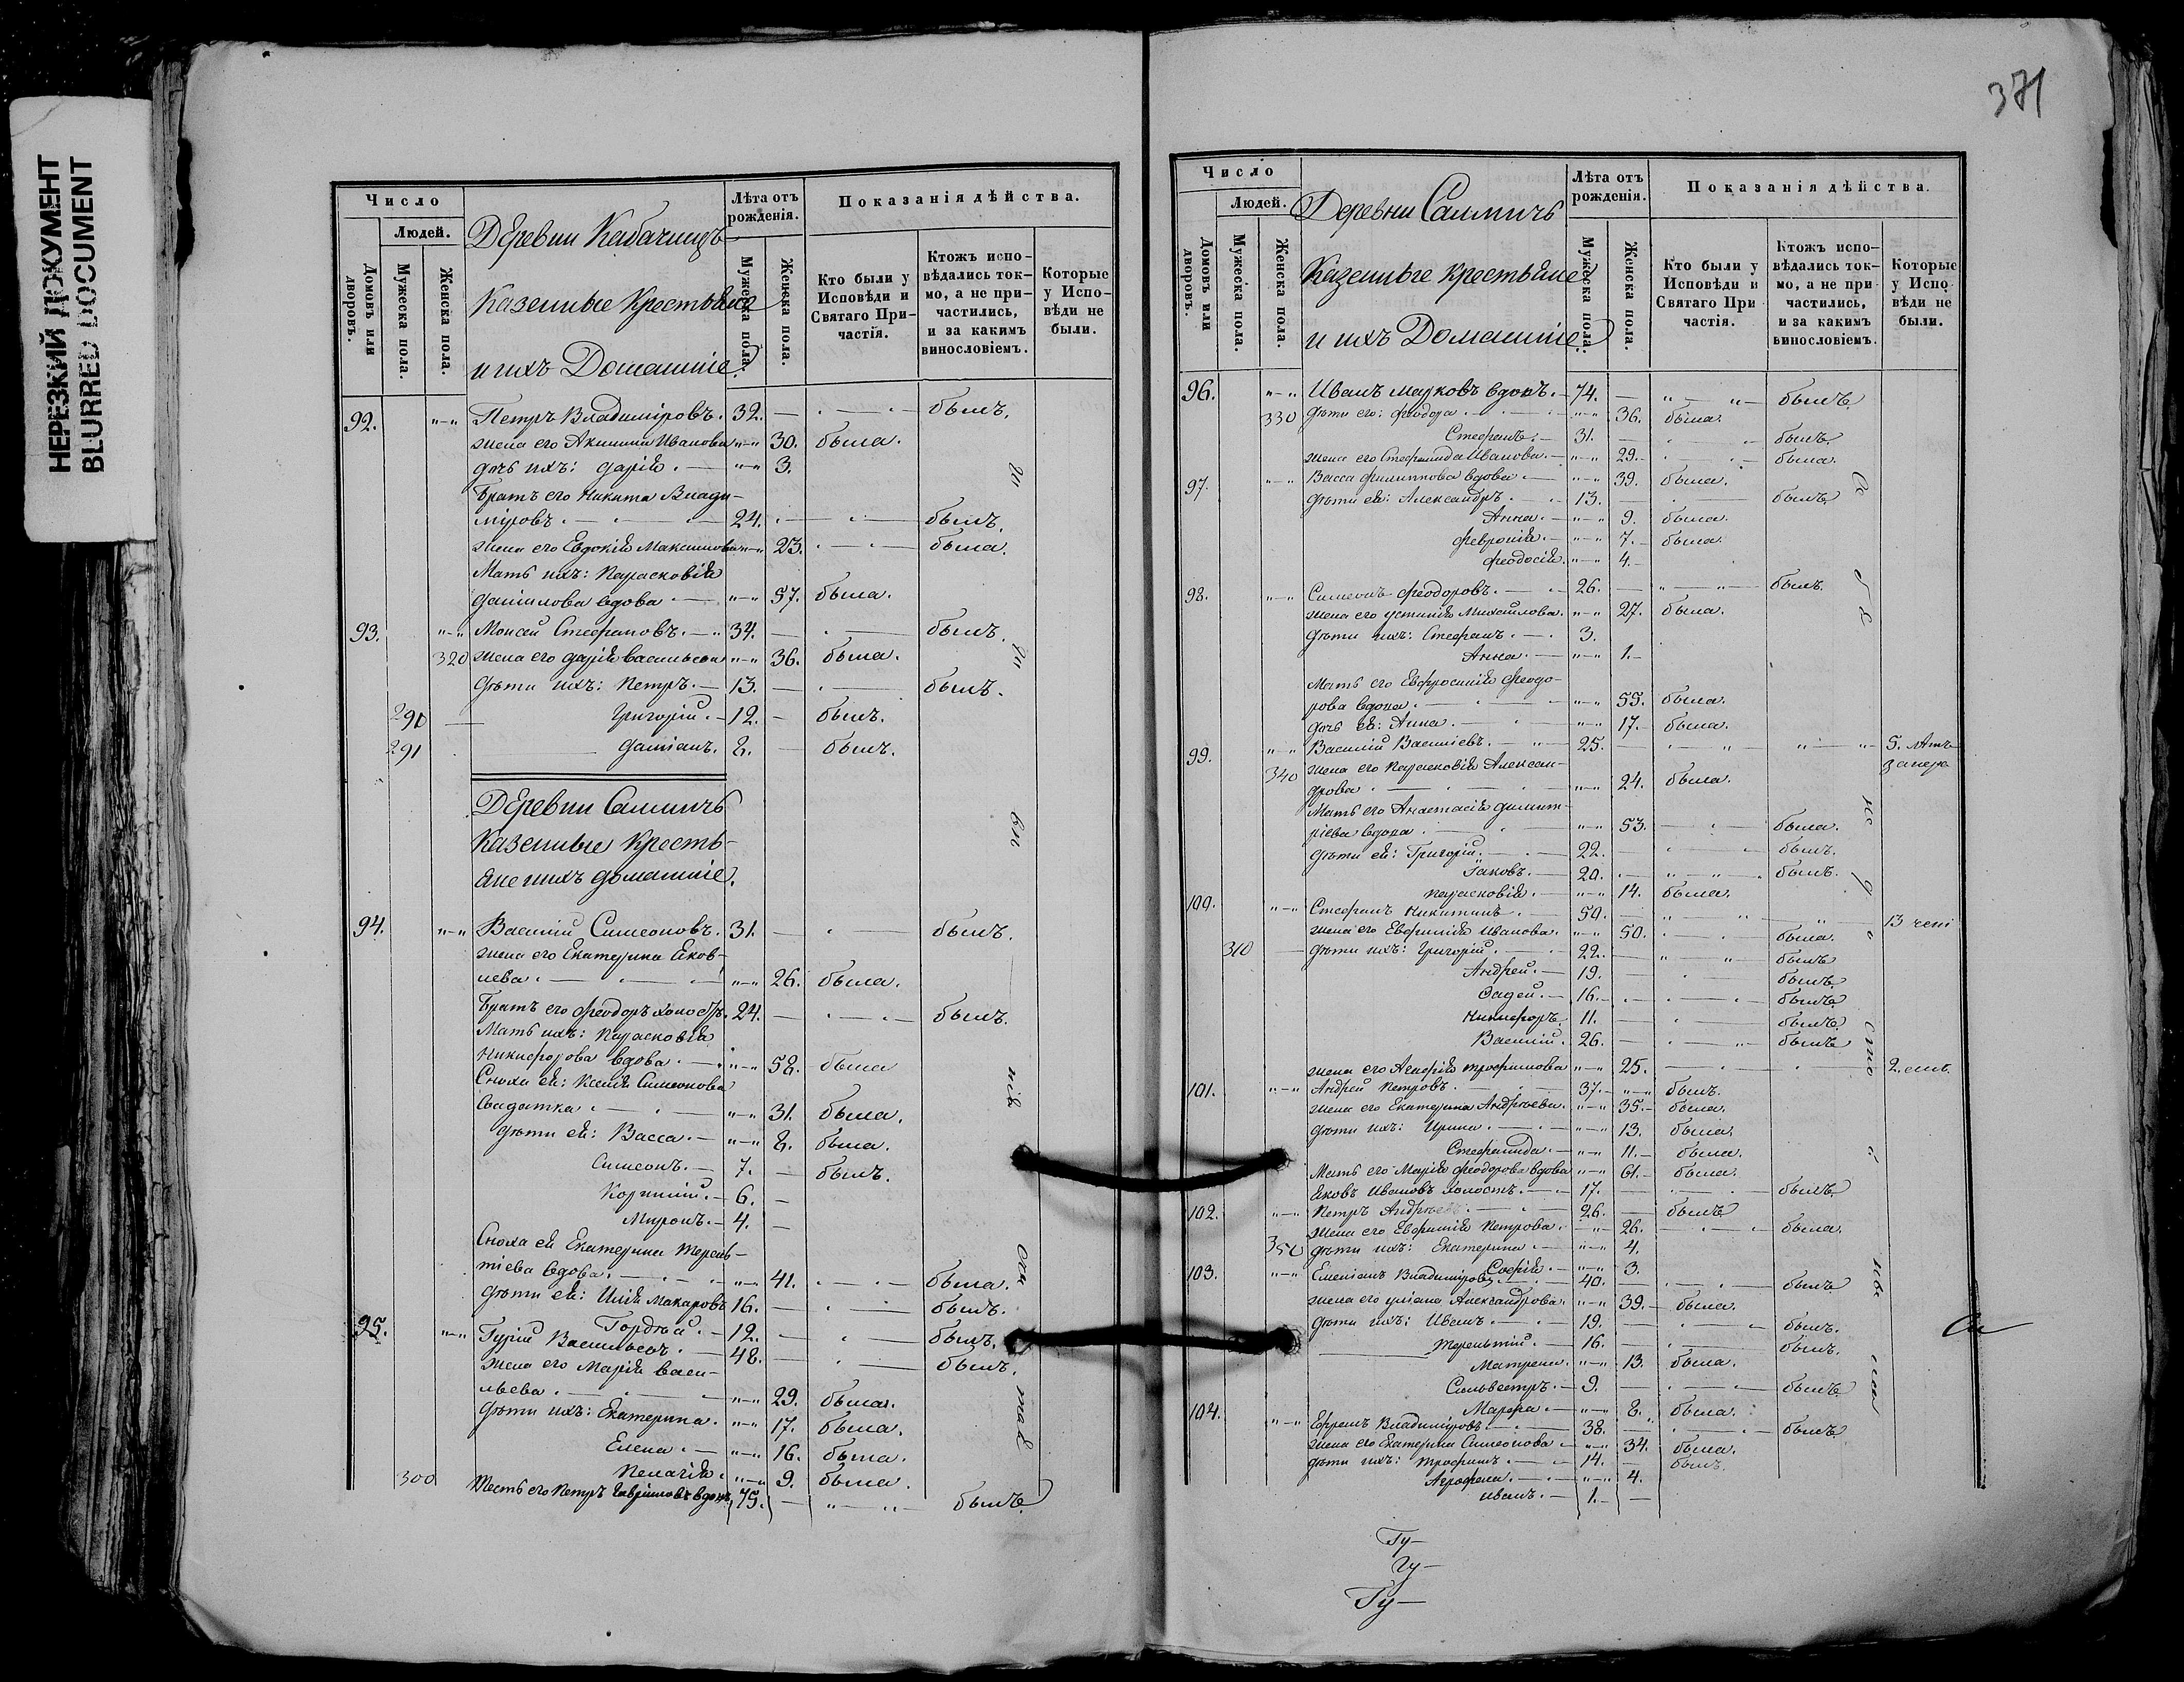 НЕРЕЗКИЙ ДОКУМЕНТ
BLURRED DOCUMENT
Число
Людей.
Домовъ или дворовъ.
Мужеска пола.
Женска пола.
Деревни Кабачищъ
Казенные Крестьяне
и ихъ Домашніе
Лѣта отъ рожденія.
Мужеска пола.
Женска пола.
Показанія дѣйства.
Кто были у Исповѣди и Святаго Причастія.
Ктожъ исповѣдались токмо, а не причастились, и за какимъ винословіемъ.
Которые у Исповѣди не были.
92. Петръ Владиміровъ. 32. былъ.
жена его Акилина Иванова 30. была.
дочь ихъ: Дарія. 3.
Братъ его Никита Влади-
міровъ. 24. былъ.
жена его Евдокія Максимова 23. была.
Мать ихъ: Парасковія
Данилова вдова 57. была.
93. Моисей Стефановъ. 34. былъ.
320 жена его Дарія Васильева 36. была.
дѣти ихъ: Петръ. 13. былъ.
290 Григорій. 12. былъ.
291 Даміанъ. 8. былъ.
Деревни Салмичь
Казенные Кресть-
яне и ихъ домашніе.
94. Василій Симеоновъ. 31. былъ.
жена его Екатерина Яков-
лева. 26. была.
Братъ его Феодоръ холостъ. 24. былъ.
Мать ихъ: Парасковія
Никифорова вдова. 58. была
Сноха ея: Ксенія Симеонова
Солдатка 31. была.
дѣти ея: Васса. 8. была.
Симеонъ. 7. былъ.
Корнилій. 6.
Миронъ. 4.
Сноха ея Екатерина Терень-
тіева вдова. 41. была.
дѣти ея: Илія Макаровъ 16. былъ.
Гордѣй. 12. былъ.
95. Гурій Васильевъ. 48. былъ.
жена его Марія Васи-
льева. 29. была.
дѣти ихъ: Екатерина. 17. была.
Елена. 16. была.
Пелагія. 9. была.
300 Тесть его Петръ Гавріиловъ вдовъ 75. былъ
371
Число
Людей.
Домовъ или дворовъ.
Мужеска пола.
Женска пола.
Деревни Салмичь
Казенные крестьяне
и ихъ Домашніе
Лѣта отъ рожденія.
Мужеска пола.
Женска пола.
Показанія дѣйства.
Кто были у Исповѣди и Святаго Причастія.
Ктожъ исповѣдались токмо, а не причастились, и за какимъ винословіемъ.
Которые у Исповѣди не были.
96. Иванъ вдовъ. 74. былъ
330 дѣти его: Феодора 36. была.
Стефанъ. 31. былъ.
жена его Стефанида Иванова. 29. была.
97. Васса Филиппова вдова 39. была.
дѣти ея: Александръ. 13. былъ
Анна. 9. была.
Февронія. 7. была.
Феодосія. 4.
98. Симеонъ Феодоровъ. 26. былъ.
жена его Устинія Михайлова. 27. была.
дѣти ихъ: Стефанъ. 3.
Анна. 1.
Мать его Евфросинія Феодо-
рова вдова. 55. была.
дочь ея: Анна. 17. была.
99. Василій Василіевъ. 25. 5. лѣтъ
340 жена его Парасковія Алексан-
дрова 24. была.
Мать его Анастасія Димит-
ріева вдова 53. была.
дѣти ея: Григорій. 22. былъ.
Іаковъ. 20. былъ.
Парасковія. 14. была.
100. Стефанъ Никитинъ. 50. 13
жена его Евфимія Иванова. 50. была.
310 дѣти ихъ: Григорій. 22. былъ
Андрей. 19. былъ
Фадей. 16. былъ
Никифоръ. 11. былъ
Василій. 26. былъ
жена его Агафія Трофимова 25. 2.
101. Андрей Петровъ. 37. былъ.
жена его Екатерина Андреева. 35. была.
дѣти ихъ: Ирина. 13. была.
Стефанида. 11. была.
Мать его Марія Феодорова вдова 61. была.
Яковъ Ивановъ холостъ. 17. былъ
102. Петръ Андреевъ. 26. былъ
жена его Евфимія Петрова. 26. была.
350 дѣти ихъ: Екатерина. 4.
Софія. 3.
103. Емеліанъ Владиміровъ. 40. былъ
жена его Уліана Александрова. 39. была.
дѣти ихъ: Иванъ. 19. былъ.
Терентій. 16. былъ.
Матрена. 13. была.
Сильвестръ. 9. былъ
Марфа. 8. была.
104. Ефремъ Владиміровъ 38. былъ
жена его Екатерина Симеонова 34. была.
дѣти ихъ: Трофимъ. 14. былъ.
Агрофена. 4.
Иванъ. 1.
Гу-
Гу-
Гу-